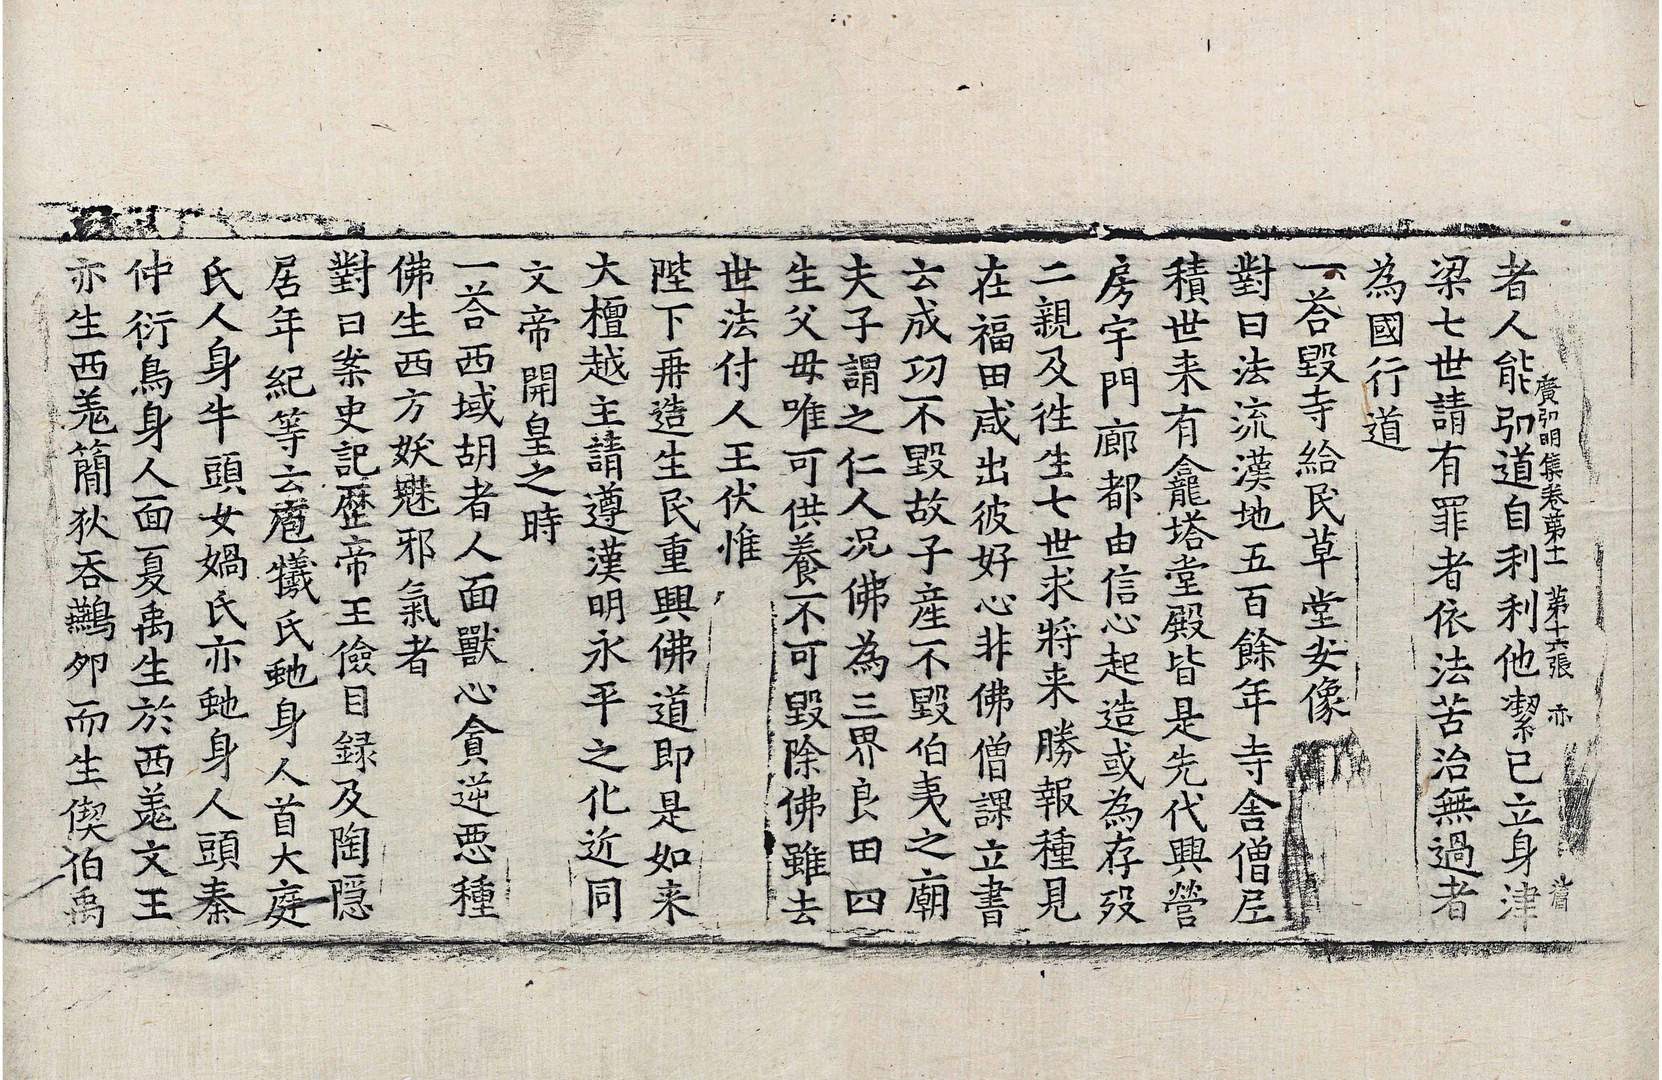 廣弘明集卷第十一 第十六張 亦
者人能弘道自利利他潔已立身津
梁七世請有罪者依法苦治無過者
為國行道
一荅毀寺給民草堂安像
對曰法流漢地五百餘年寺舎僧尼
積世来有龕塔堂殿皆是先代興營
房宇門廊都由信心起造或為存歿
二親及徃生七世求將来勝報種見
在福田咸出彼好心非佛僧課立書
云成㓛不毀故子產不毀伯夷之廟
夫子謂之仁人况佛為三界良田四
生父母唯可供養不可毀除佛雖去
世法付人王伏惟
陛下再造生民重興佛道即是如来
大檀越主請遵漢明永平之化近同
文帝開皇之時
一荅西域胡者人面獸心貪逆惡種
佛生西方妖魅邪氣者
對曰案史記歷帝王儉目録及陶隱
居年紀等云庖犧氏虵身人首大庭
氏人身牛頭女媧氏亦虵身人頭秦
仲衍鳥身人面夏禹生於西羗文王
亦生西羗簡狄吞鷰夘而生偰伯禹